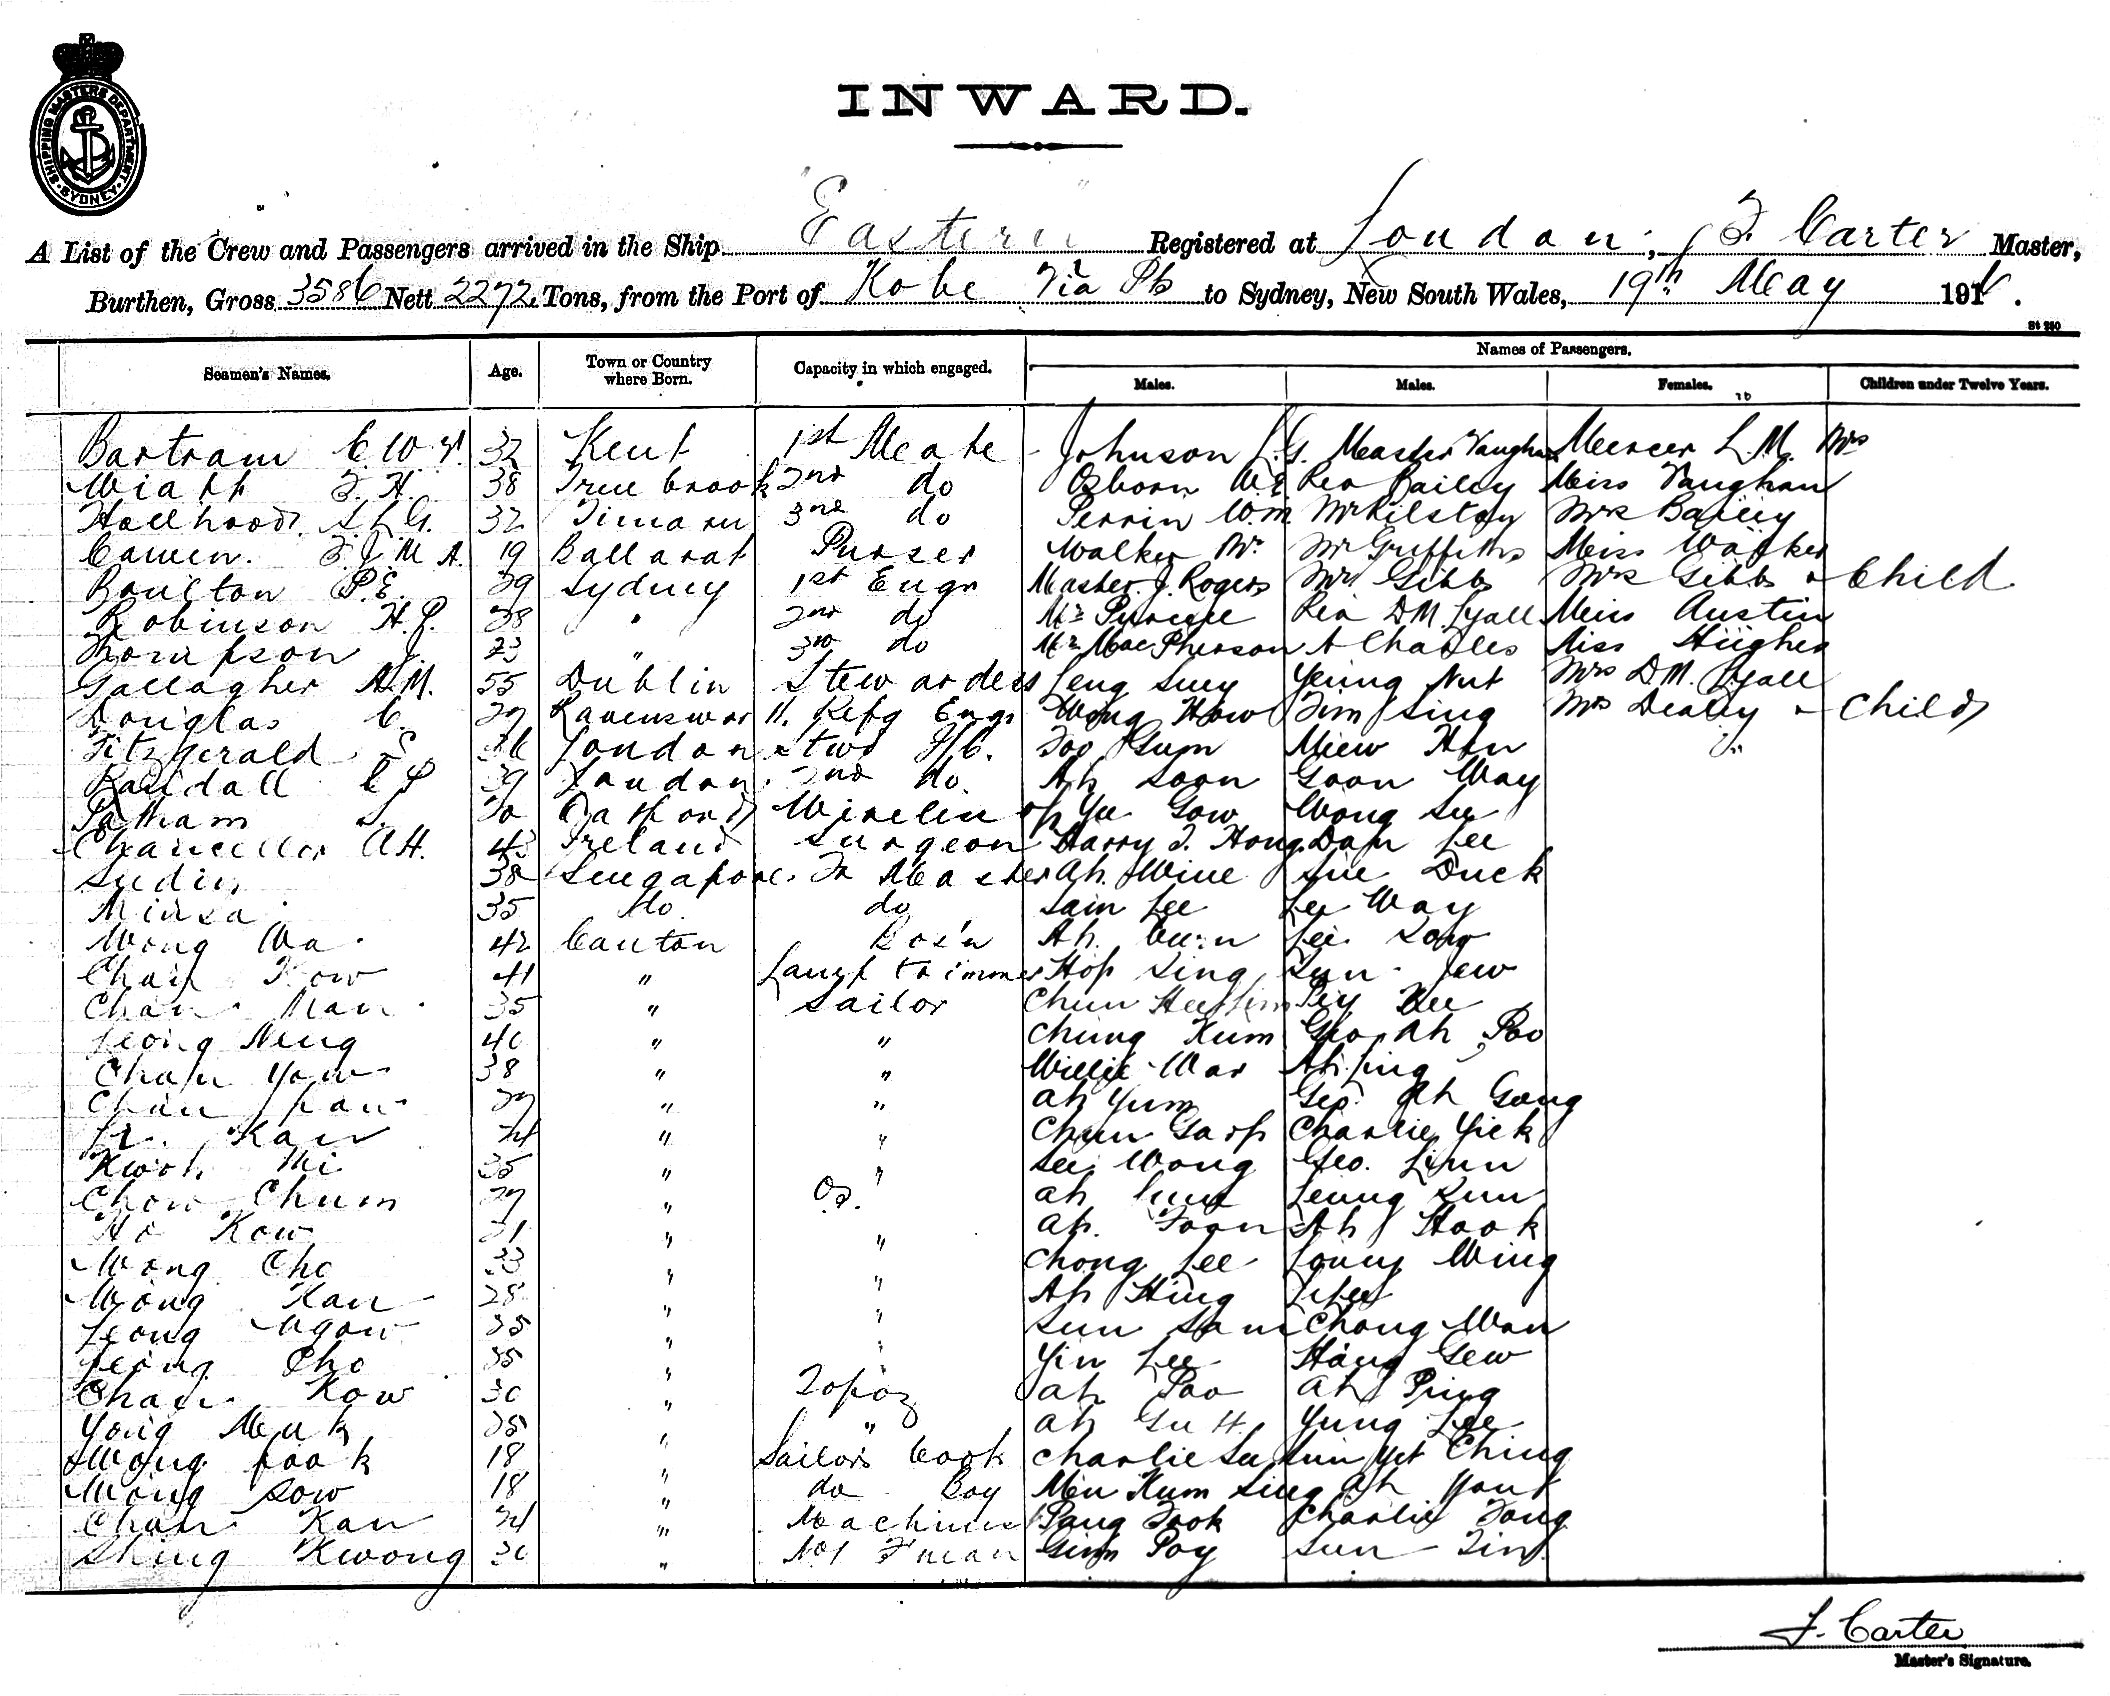 SHIPPING MASTERS DEPARTMENT
SYDNEY
INWARD.
A List of the Crew and Passengers arrived in the Ship Eastern Registered at London, F. Carter Master,
Burthen, Gross 3586 Nett 2272 Tons, from the Port of Kobe Via Pts to Sydney, New South Wales, 19th May 191
St 250
Seamen's Names. Age. Town or Country where Born. Capacity in which engaged. Names of Passengers.
Males. Males. Females. Children under Twelve Years.
Bartram C.W. 32 Kent 1st Mate Johnson Master Vaughan Mercer L.M. Mrs
Wiatt F.H. 38 2nd do Osborn W.E Rev Bailey Miss Vaughan
32 Timaru 3rd do Perrin W.m. Mr Kilstoy Mrs Bailey
19 Ballarat Purser Walker Mr. Mr Griffiths Miss Walker
Boulton P.E. 39 Sydney 1st Engr Master. J. Rogers Mr Gibbs Mrs Gibbs & Child
Robinson H.P. 28 " 2nd do Mr Rev D.M. Lyall Miss Austin
Thompson J. 23 " 3rd do Mr MacPherson A Charles Miss Hughes
Gallagher A.M. 55 Dublin Stewardess Leng Suey Yeung Nut Mrs D.M. Lyall
Douglas C. 27 Ravenswor Refg Engr Wong How Tim Sing Mrs Deasy & Child
Fitzgerald E 36 London Stwd Foo Gum Miew Hin
Randall 39 London 2nd do Ah Soon Goon Way
S. 20 Wireless op Yee Gow Wong See
Chancellor A.H. 43 Ireland Surgeon Harry T. Hong Dam Lee
Sudin 38 Singapore. Qr Master Ah. Wine Sue Duck
Minsa 35 do do Sam Lee Lee Way
Wong Wa 42 Canton Bos'n Ah. Lee
Chan Kow 41 " Lamp trimmer Hop Sing Sun Jew
Chan Man 35 " Sailor Chun Hee Kee
Leong Neng 40 " " Chung Kum Geo Ah Poo
Chan Yow 38 " " Willie War Ah Ling
Chan 27 " " Ah Yum Geo. Ah Gong
Kan 24 " " Chun Charlie Yick
Kwok Mi 35 " " See Wong Geo. Linn
Chow Chum 27 " Ah Leung Kun
Ho Kow 31 " " Ah. Toon Ah Hook
Wong Cho 33 " " Chong Lee Louey Wing
Wong Kan 28 " " Ah Hing
Leong Ngow 35 " " Sun Sam Chong Wan
Leong Cho 35 " " Yin Lee Hang Gew
Chan Kow 30 " Topaz Ah Poo Ah Ping
Yong Muk 35 " " Ah Yung Lee
Wong Fook 18 " Sailors Cook Charlie Lee Sun Yet Ching
Wong Sow 18 " do Boy Men Kum Sing Ah You
Chan Kan 24 " Pang Fook Charlie Tong
Shing Kwong 30 " No 1 F'man Ginn Poy Sun Tin
F. Carter
Master's Signature.